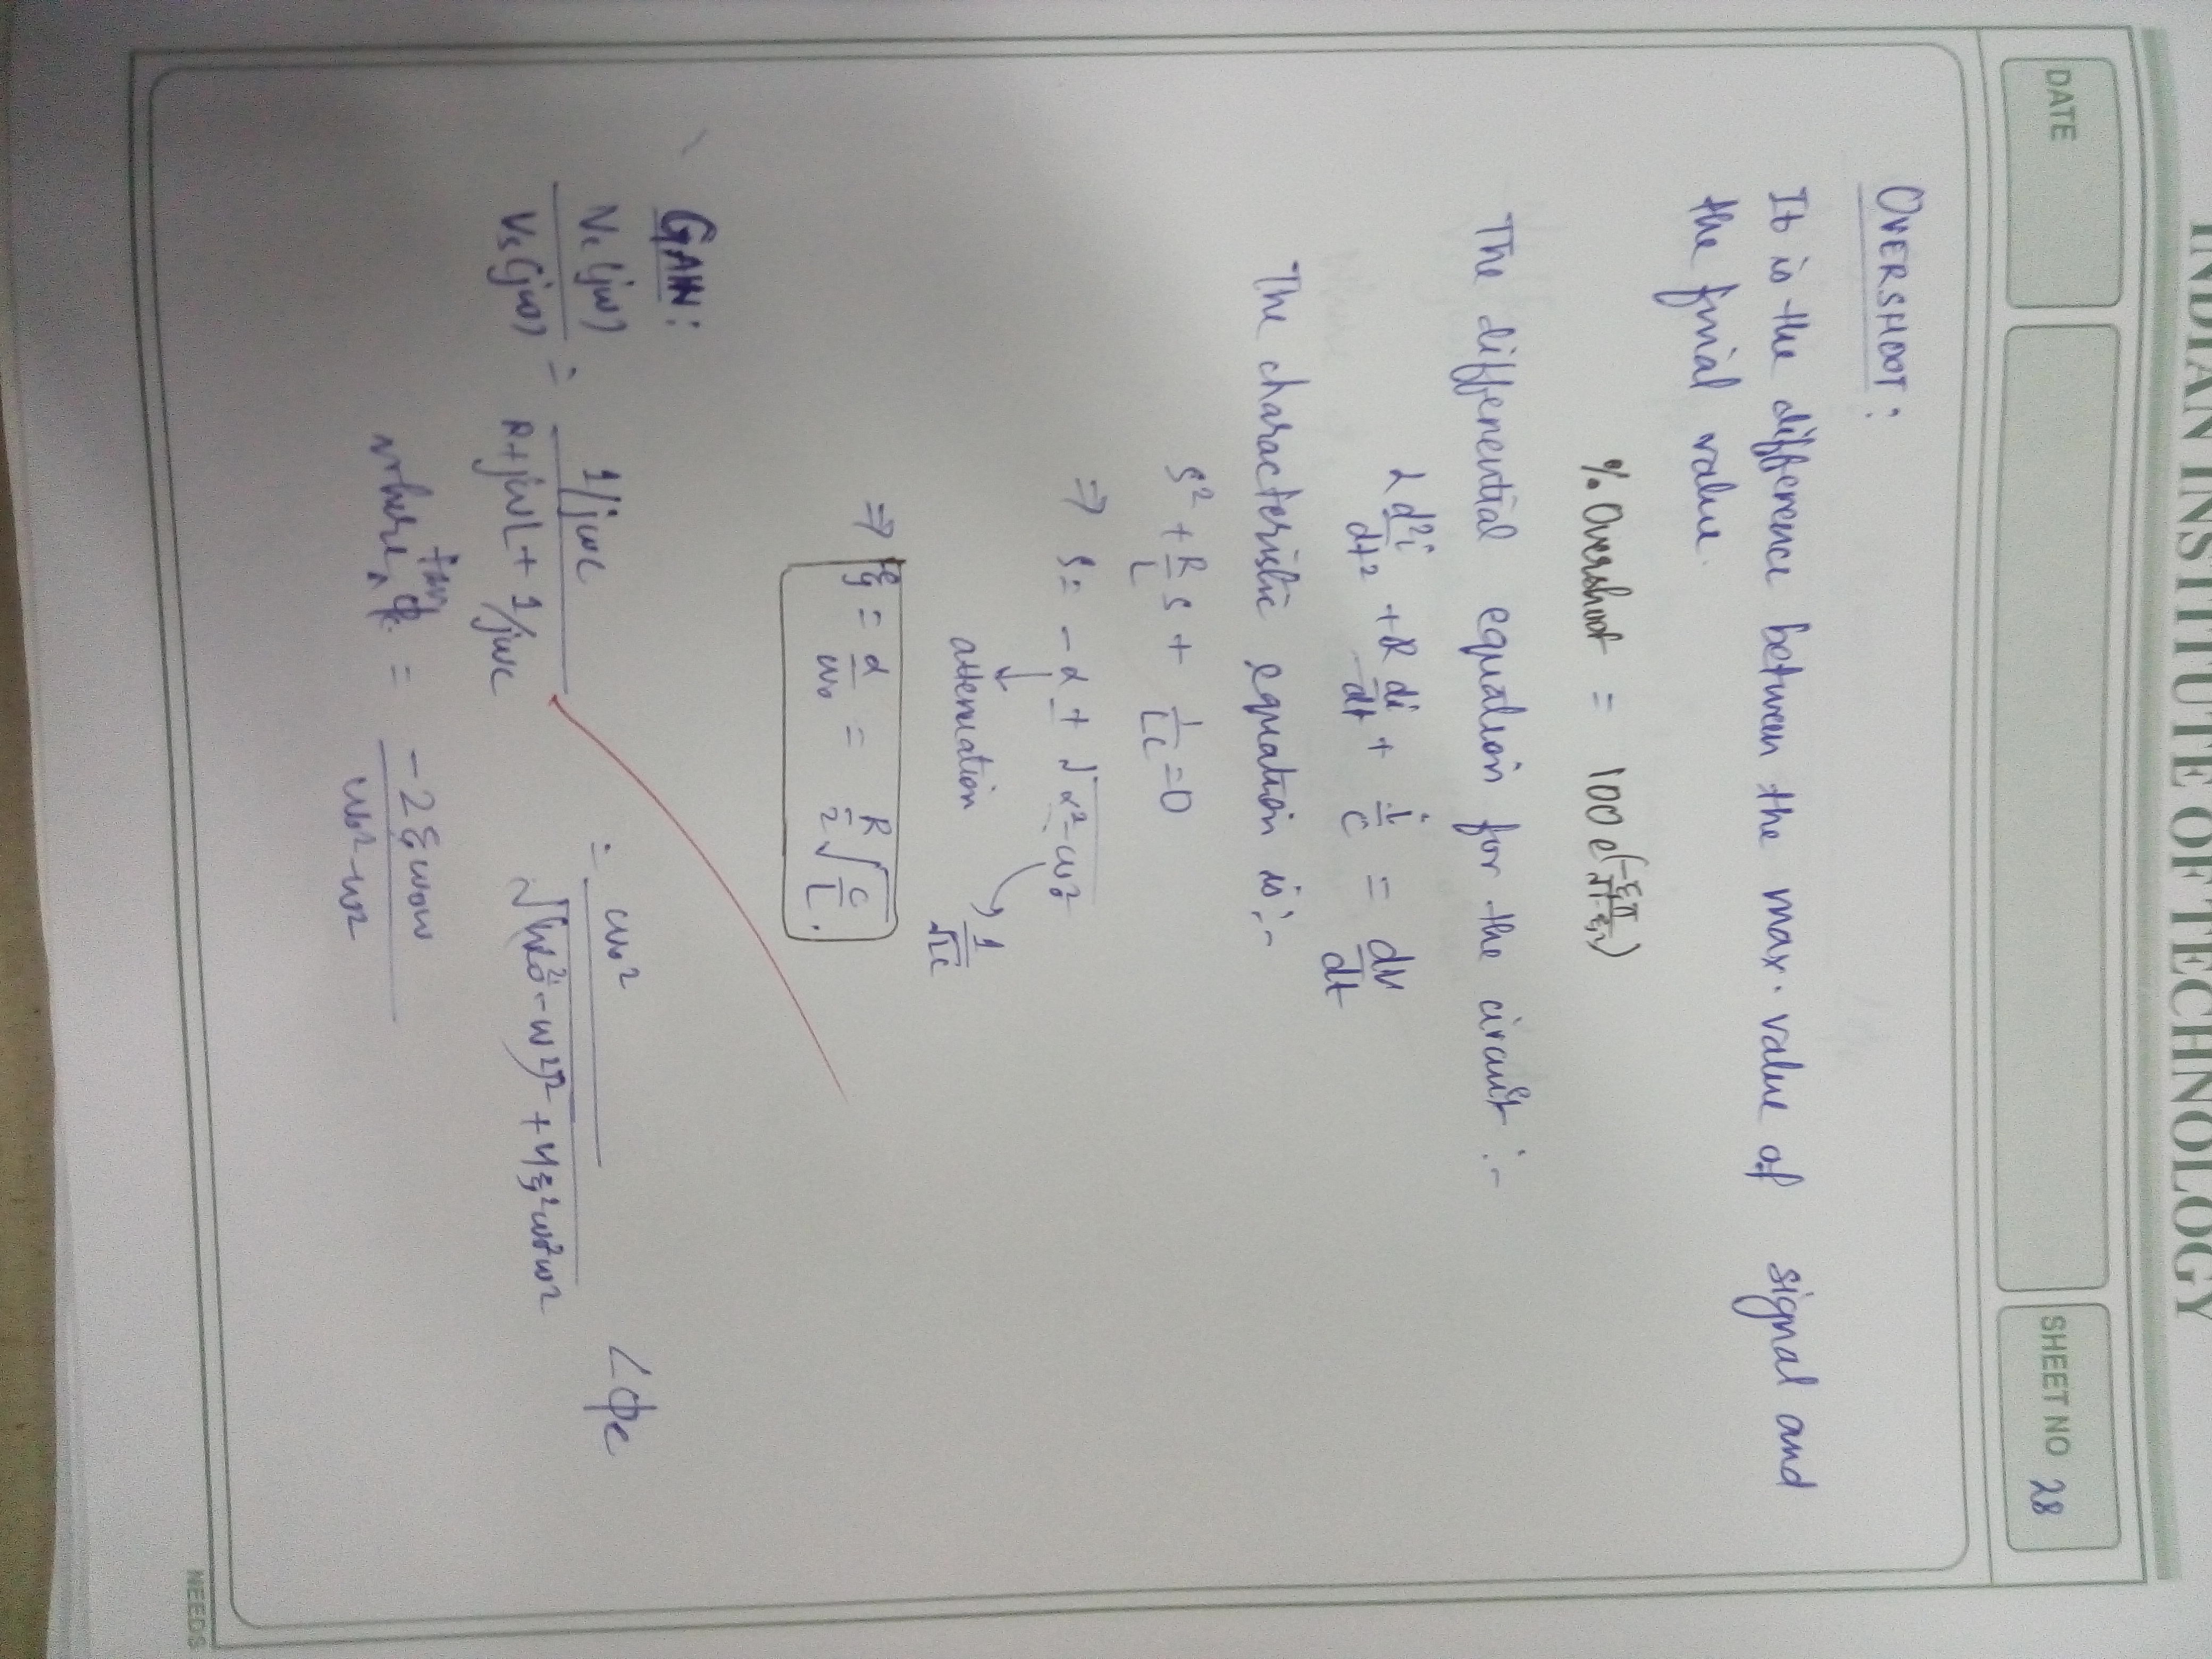 INDIAN INSTITUTE OF TECHNOLOGY
DATE
SHEET NO 28
OVERSHOOT:
It is the difference between the max. value of signal and
the final value.
% Overshoot = 100 e^(-ξπ/√(1-ξ²))
The differential equation for the circuit :-
L d²i/dt² + R di/dt + i/C = dv/dt
The characteristic equation is:-
S² + R/L S + 1/LC = 0
⇒ S = -α ± √(α² - ω₀²)
attenuation
1/√LC
⇒ ξ = α/ω₀ = R/2 √(C/L).
GAIN:
Vc(jω)/Vs(jω) = (1/jωC)/(R+jωL+1/jωC) = ω₀²/√((ω₀²-ω²)²+4ξ²ω₀²ω²) ∠ϕc
where, tan ϕc = -2ξω₀ω/(ω₀²-ω²)
NEEDS